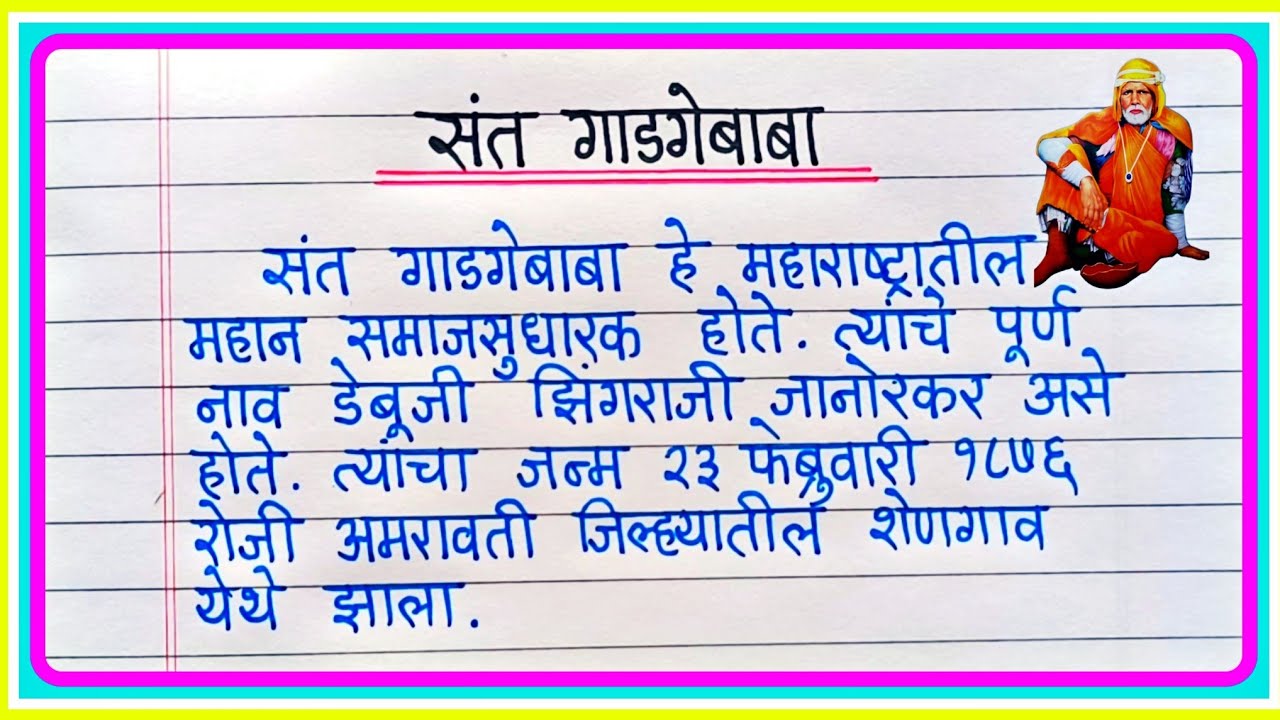 संत गाडगेबाबा
संत गाडगेबाबा हे महाराष्ट्रातील
महान समाजसुधारक होते. त्यांचे पूर्ण
नाव डेबूजी झिंगराजी जानोरकर असे
होते. त्यांचा जन्म २३ फेब्रुवारी १८७६
रोजी अमरावती जिल्ह्यातील शेणगाव
येथे झाला.